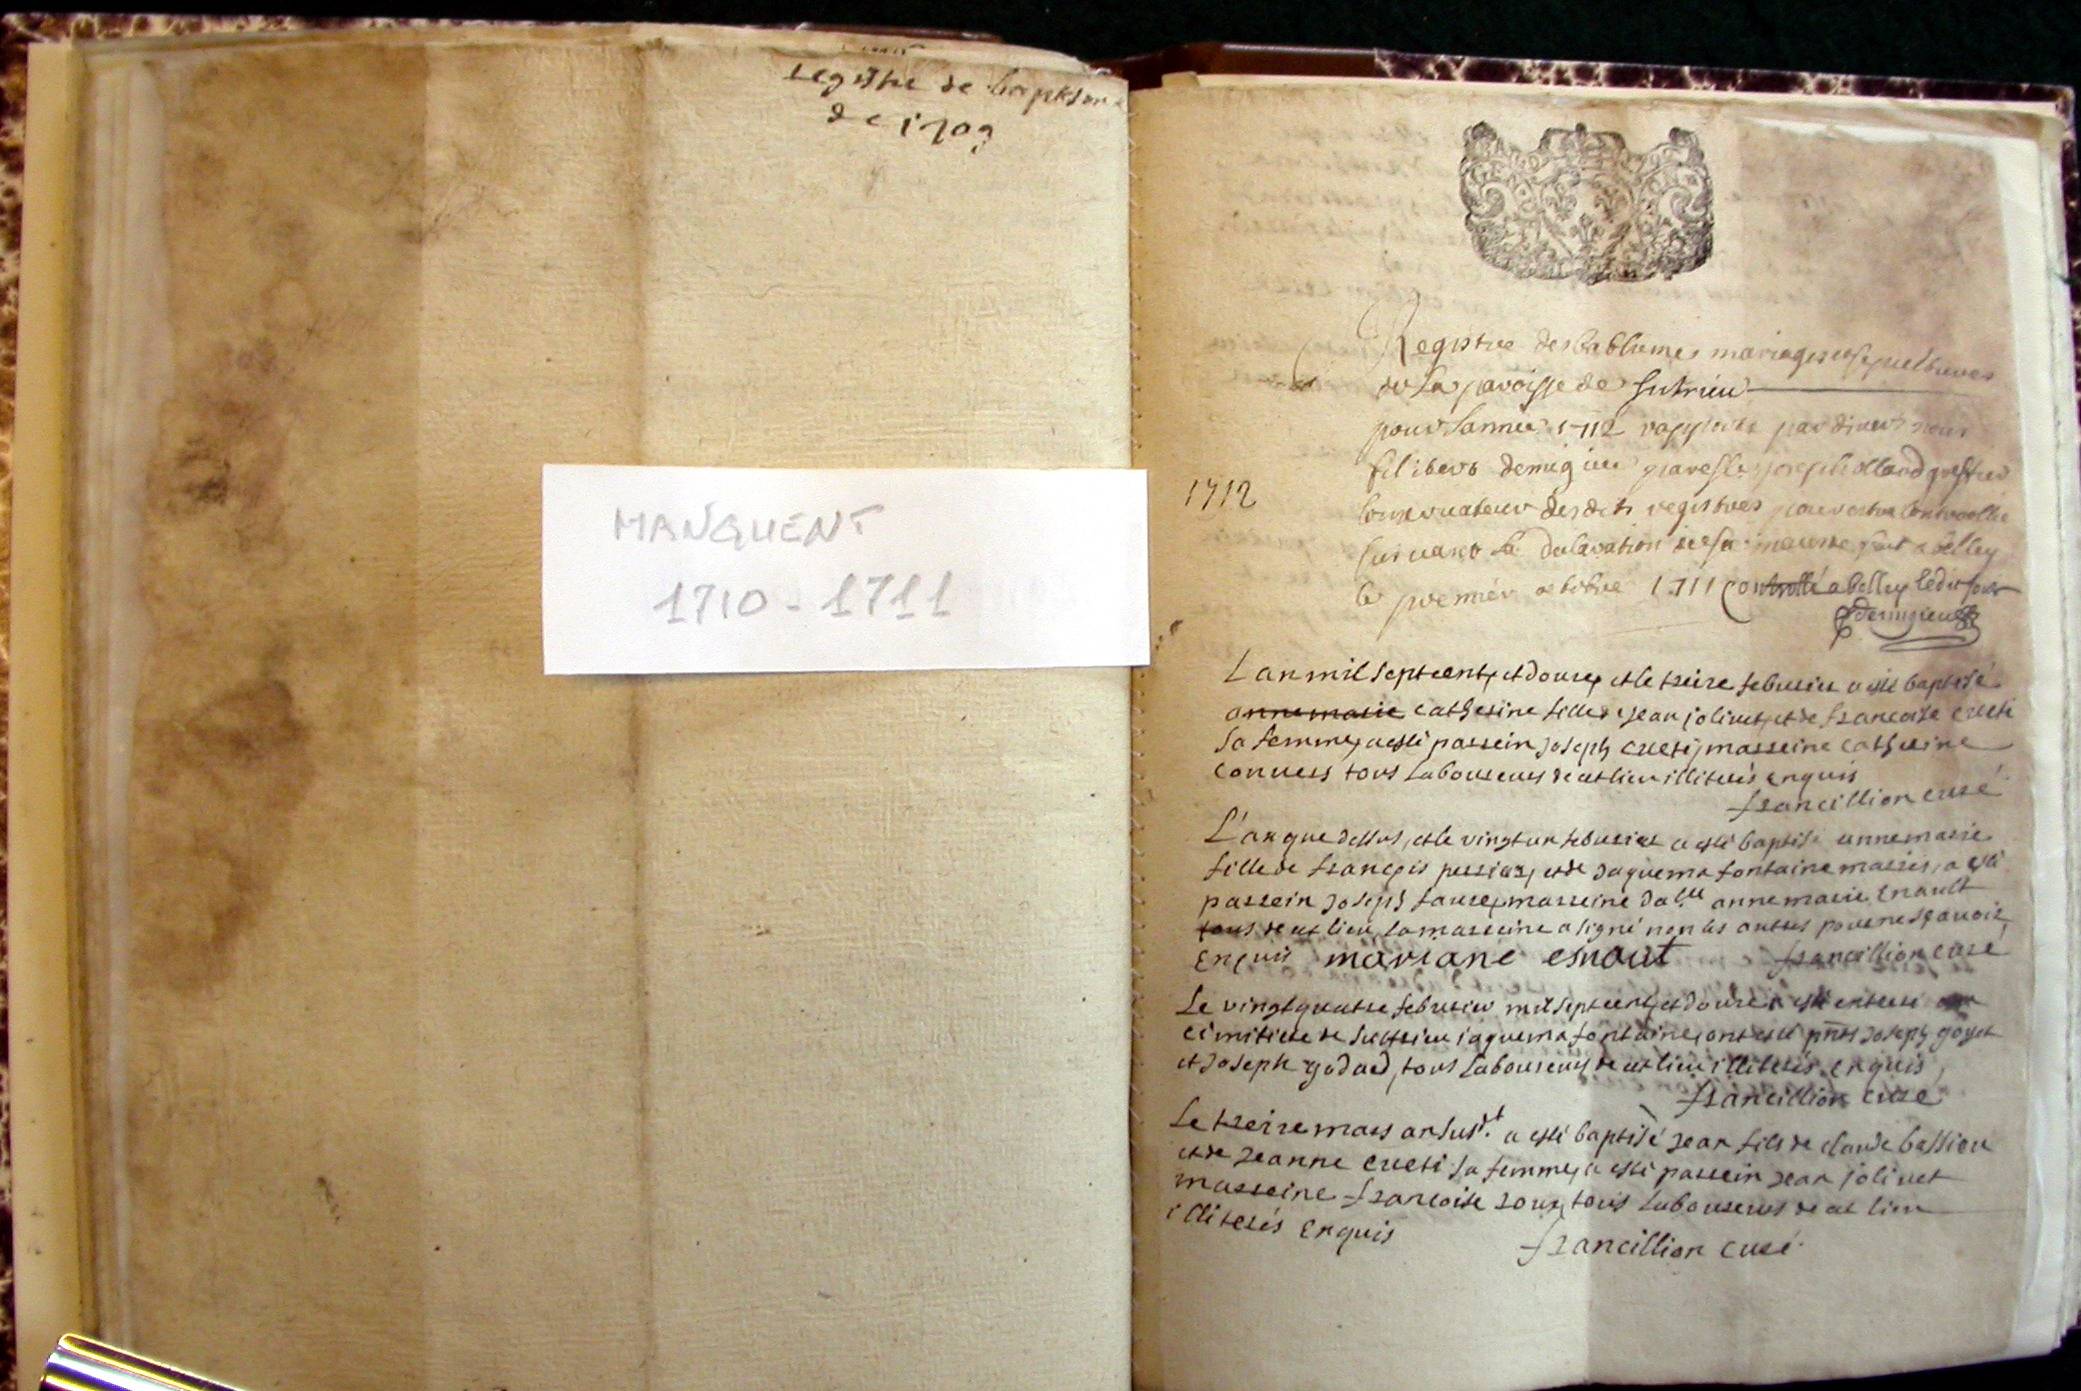 registre de baptsme
de 1709
MANQUENT
1710 - 1711
Registre des babtumes mariages et sepultures
de la paroisse de Sutrieu
pour lannee 1712 par nous
filibert demigieu joseph prestre
conservateur desdits registres pour estre controollé
suivant la declaration de sa fait a belley
le premier octobre 1711 Controllé a belley ledit jour
demigieu
1712
L an mil septcent, et douze, et le treize febvrier a esté baptisé
annemarie catherine fille de jean jolivet, et de francoise creti
sa femme, a esté parrein joseph creti, marreine catherine
convers tous laboureurs de cet lieu illiterés enquis
francillion curé
L'an que dessus, et le vingt un febvrier a esté baptisé annemarie
fille de françois perriaz, et de jaquema fontaine mariés, a esté
parrein joseph marreine dalle annemarie Enault
tous de cet lieu, la marreine a signé non les autres pour ne sçavoir
Enquis mariane esnaut francillion curé
Le vingtquatre febvrier mil septcent, et douze a esté enterré au
cimitiere de Suttrieu jaquema fontaine, ont esté pnts joseph goyet
et joseph godard, tous laboureurs de cet lieu illiterés enquis
francillion curé
Le treize mars an susdt. a esté baptisé jean fils de claude bessieu
et de jeanne creti sa femme, a esté parrein jean jolivet
marreine francoise roux, tous laboureurs de cet lieu
illiterés Enquis
francillion curé